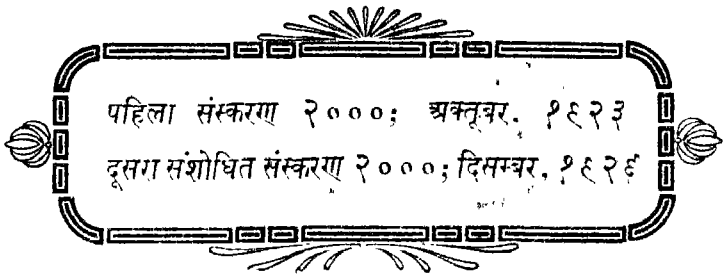 पहिला संस्करण २०००; अक्तूबर. १९२३
दूसरा संशोधित संस्करण २०००; दिसम्बर, १९२६